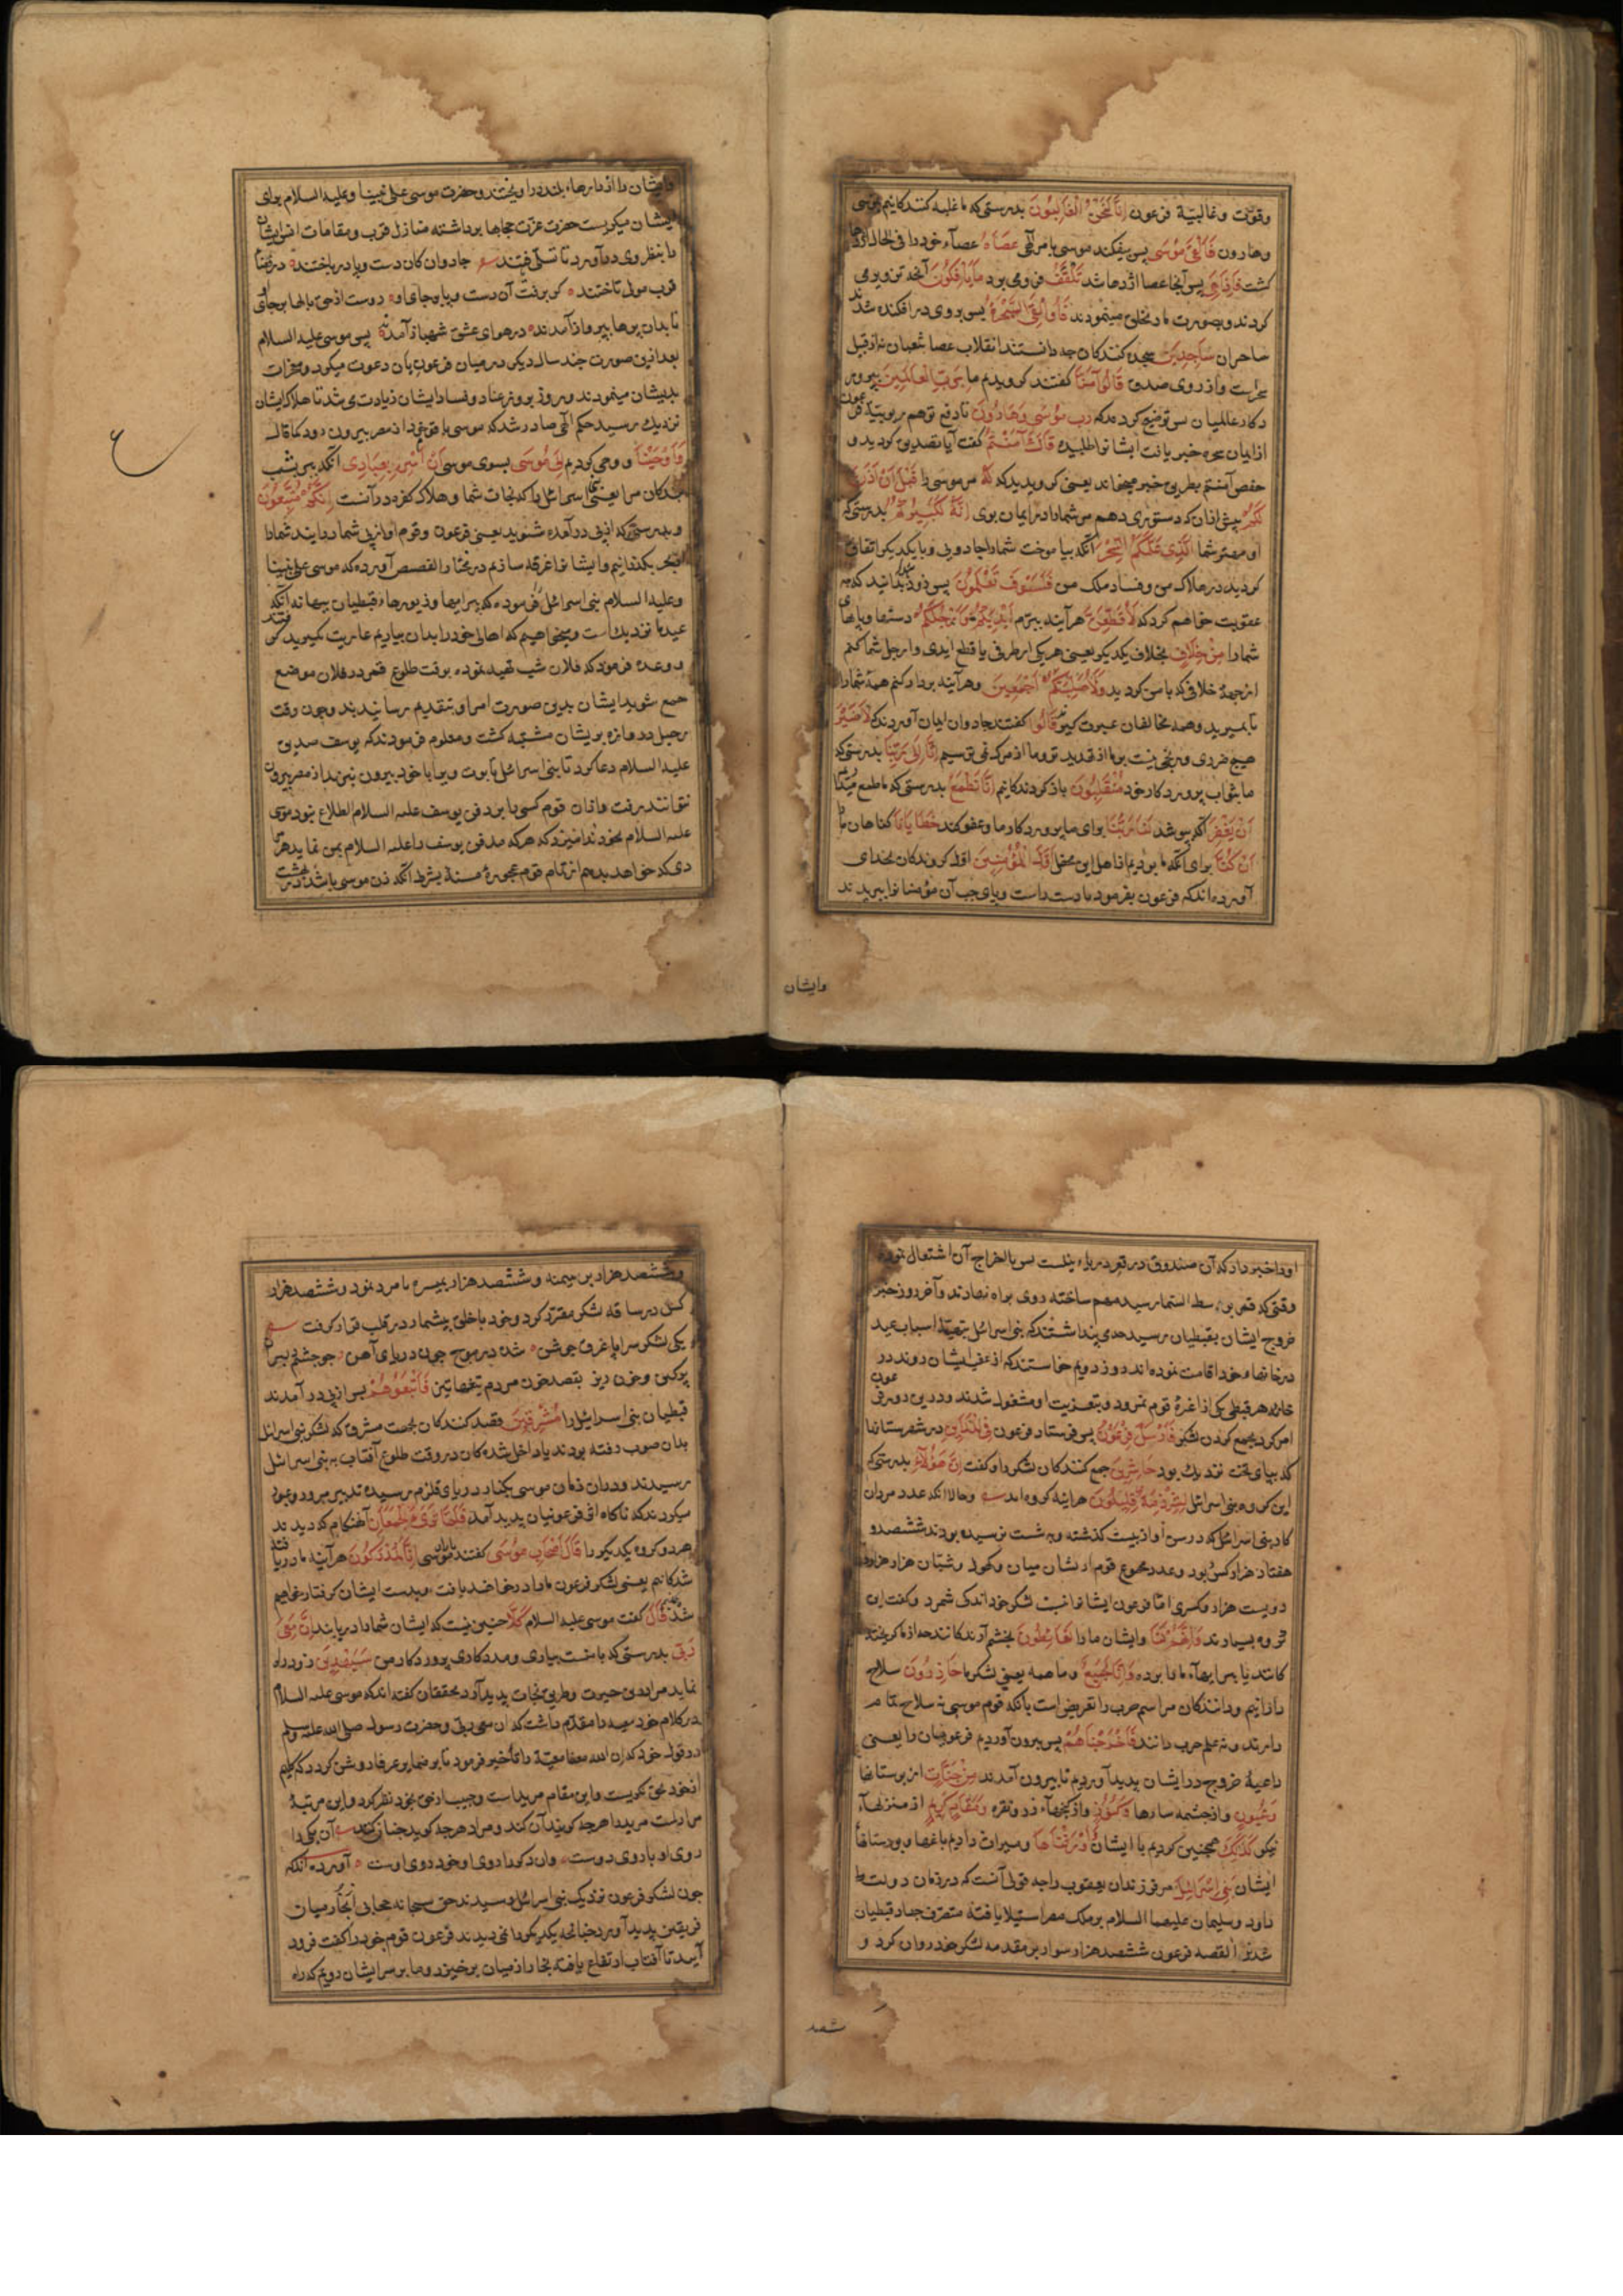 وقوّت وغالبیّة فرعون إِنَّا لَنَحْنُ الْغَالِبُونَ بدرستی که ما غلبه کنندکانیم بر موسی
وهارون فَأَلْقَى مُوسَى پس بیفکند موسی بامر الهی عَصَاهُ عصاء خود را فی الحال اژدها
کشت فَإِذَا هِيَ پس آنجا عصا اژدها شد تَلْقَفُ فرو می برد مَا يَأْفِكُونَ آنچه تزویر می
کردند وبصورت مار بخلق مینمودند فَأُلْقِيَ السَّحَرَةُ پس بروی در افکنده شدند
ساحران سَاجِدِينَ سجده کنندکان چه دانستند انقلاب عصا بثعبان نه از قبیل
سحرست واز روی صدق قَالُوا آمَنَّا کفتند کرویدیم ما بِرَبِّ الْعَالَمِينَ بپرور
دکار عالمیان پس توضیح کردند که رَبِّ مُوسَى وَهَارُونَ تا دفع توهم ربوبیّة فرعون
از ایمان سحره خبر یافت ایشانرا طلبیده قَالَ آمَنْتُمْ کفت آیا تصدیق کردید و
حفص آمنتم بطریق خبر میخواند یعنی کرویدید که لَهُ مر موسی را قَبْلَ أَنْ آذَنَ
لَكُمْ پیش از آن که دستوری دهم من شمارا در ایمان بوی إِنَّهُ لَكَبِيرُكُمْ بدرستی که
او مهتر شما الَّذِي عَلَّمَكُمُ السِّحْرَ آنکه بیاموخت شمارا جادویی وبا یکدیکر اتفاق
کردید در هلاک من وفساد ملک من فَلَسَوْفَ تَعْلَمُونَ پس زود بدانید که چه
عقوبت خواهم کرد که لَأُقَطِّعَنَّ هرآینه ببرّم أَيْدِيَكُمْ وَأَرْجُلَكُمْ دستها وپاهای
شمارا مِنْ خِلَافٍ بخلاف یکدیکر یعنی هر یکی از طرفی یا قطع ایدی وارجل شما کنم
از جهة خلافی که با من کردید وَلَأُصَلِّبَنَّكُمْ أَجْمَعِينَ وهرآینه بر دار کنم همهٔ شمارا
تا بمیرید وهمه مخالفان عبرت کیرند قَالُوا کفتند جادوان ایمان آوردند که لَا ضَيْرَ
هیچ ضرری ورنجی نیست برما از تهدید تو وما از مرک نمی ترسیم إِنَّا إِلَى رَبِّنَا بدرستی که
ما بثواب پروردکار خود مُنْقَلِبُونَ باز کردندکانیم إِنَّا نَطْمَعُ بدرستی که ما طمع میداریم
أَنْ يَغْفِرَ آنکه بپوشد لَنَا رَبُّنَا برای ما پروردکار ما وعفو کند خَطَايَانَا کناهان ما
أَنْ كُنَّا برای آنکه ما بودیم از اهل این محفل أَوَّلَ الْمُؤْمِنِينَ اول کروندکان بخدای
آورده اند که فرعون بفرمود تا دست راست وپای چپ آن مؤمنانرا ببریدند
وایشان
وایشان را از دارهاء بلند در آویختند وحضرت موسی علی نبینا وعلیه السلام برای
ایشان میکریست حضرت عزّت حجابها برداشته منازل قرب ومقامات انس ایشان
را بنظر وی در آورد تا تسلی یافتند جادوان کان دست وپا درباختند در فضاء
قرب مولی تاختند کر برفت آن دست وپا برجای او رست از حق بالها برجای
تا بدان پرها بپرواز آمدند در هوای عشق شهباز آمدند پس موسی علیه السلام
بعد ازین صورت چند سال دیکر در میان فرعونیان دعوت میکرد ومعجزات
بدیشان مینمودند وروز بروز عناد وفساد ایشان زیادت می شد تا هلاک ایشان
نزدیک رسید حکم الهی صادر شد که موسی با قوم خود از مصر بیرون رود کما قال
وَأَوْحَيْنَا و وحی کردیم إِلَى مُوسَى بسوی موسی أَنْ أَسْرِ بِعِبَادِي آنکه ببر بشب
بندکان مرا یعنی بنی اسرائیل را که نجات شما وهلاک کفره در آنست إِنَّكُمْ مُتَّبَعُونَ
وبدرستی که از پی در آمده شوید یعنی فرعون وقوم او از پی شما در آیند شمارا
از بحر بکذرانیم وایشانرا غرقه سازیم در مختار القصص آورده که موسی علی نبینا
وعلیه السلام بنی اسرائیل را فرموده که پیرایها وزیورهاء قبطیان ببهانه آنکه
عید ما نزدیک است ومیخواهیم که اهالی خود را بدان بیارایم عاریت کیرید
ووعده فرمود که فلان شب تهیه نموده بوقت طلوع قمر در فلان موضع
جمع شوید ایشان بدین صورت امر او بتقدیم رسانیدند وچون وقت
رحیل در وادی بریشان مشتبه کشت ومعلوم فرمودند که یوسف صدیق
علیه السلام دعا کرد تا بنی اسرائیل تابوت ویرا با خود بیرون نبرند از مصر بیرون
نتوانند رفت وازان قوم کسی را بر دفن یوسف علیه السلام اطلاع نبود موسی
علیه السلام بخود ندا میزد که هر که مدفن یوسف را علیه السلام بمن نماید هر مرا
دی که خواهد بدهم از تمام قوم عجوزهٔ مسنه بشرط آنکه زن موسی باشد در بهشت
اورا خبر داد که آن صندوق در قعر دریاء نیلست پس باخراج آن اشتغال نمودند
وقتی که قمر بوسط السماء رسید مهم ساخته روی براه نهادند وآخر روز خبر
خروج ایشان بقبطیان رسید چه می پنداشتند که بنی اسرائیل بتهیهٔ اسباب عید
در خانهاء خود اقامت نموده اند روز دویم خواستند که از عقب ایشان روند در
خانه هر قبطی یکی از اعزهٔ قوم بمرد وبتعزیت او مشغول شدند ودرین روز فرعون
امر کرد بجمع کردن لشکر فَأَرْسَلَ فِرْعَوْنُ پس فرستاد فرعون فِي الْمَدَائِنِ در شهرستانها
که بپای تخت نزدیک بود حَاشِرِينَ جمع کنندکان لشکر را وکفت إِنَّ هَؤُلَاءِ بدرستی که
این کروه بنی اسرائیل لَشِرْذِمَةٌ قَلِيلُونَ هرآینه کروه اند وحالا آنکه عدد مردان
کار بنی اسرائیل که در سن از بیست کذشته وبه شصت نرسیده بودند ششصد و
هفتاد هزار کس بود وعدد مجموع قوم
دویست هزار وکسری امّا فرعون ایشانرا نسبت لشکر خود اندک شمرد وکفت این
کروه بسیارند وَإِنَّهُمْ لَنَا وایشان مارا لَغَائِظُونَ بخشم آرندکانند
وَإِنَّا لَجَمِيعٌ وما همه یعنی لشکر ما حَاذِرُونَ سلاح
دارانیم ودانندکان مراسم حرب را تعریض است بآنکه قوم موسی نه سلاح تمام
دارند ونه علم حرب دانند فَأَخْرَجْنَاهُمْ پس بیرون آوردیم فرعونیان را یعنی
داعیهٔ خروج در ایشان پدید آوردیم تا بیرون آمدند مِنْ جَنَّاتٍ از بوستانها
وَعُيُونٍ واز چشمه سارها وَكُنُوزٍ واز کنجهاء زر ونقره وَمَقَامٍ كَرِيمٍ از منزلهاء
نیکو كَذَلِكَ همچنین کردیم با ایشان وَأَوْرَثْنَاهَا ومیراث دادیم باغها وبوستانهاء
ایشان بَنِي إِسْرَائِيلَ مر فرزندان یعقوب را چه قولی آنست که در زمان دولت
داود وسلیمان علیهما السلام بر ملک مصر استیلا یافته متصرف جهات قبطیان
شدند القصه فرعون ششصد هزار سوار بر مقدمه لشکر خود روان کرد و
ششصد
وششصد هزار بر میمنه وششصد هزار بمیسره نامزد نمود وششصد هزار
کس در ساقه لشکر مقرّر کرد وخود با خلق بیشمار در قلب قرار کرفت
یکی لشکر سراپا غرق جوشن شده در موج چون دریای آهن چو چشم دلبران
پرکین وخون ریز بقصد خون مردم تیغها تیز فَأَتْبَعُوهُمْ پس از پی در آمدند
قبطیان بنی اسرائیل را مُشْرِقِينَ قصد کنندکان بجهت مشرق که لشکر بنی اسرائیل
بدان صوب رفته بودند یا داخل شده کان در وقت طلوع آفتاب به بنی اسرائیل
رسیدند ودران زمان موسی بکنار دریای قلزم رسیده تدبیر مرور وعبور
میکردند که ناکاه اثر فرعونیان پدید آمد فَلَمَّا تَرَاءَى الْجَمْعَانِ آن هنکام که دیدند
هردو کروه یکدیکر را قَالَ أَصْحَابُ مُوسَى کفتند یاران موسی إِنَّا لَمُدْرَكُونَ هرآینه ما دریافته
شدکانیم یعنی لشکر فرعون مارا در خواهند یافت وبدست ایشان کرفتار خواهیم
شد قَالَ کفت موسی علیه السلام كَلَّا چنین نیست که ایشان شمارا دریابند إِنَّ مَعِيَ
رَبِّي بدرستی که با منست بیاری ومددکاری پروردکار من سَيَهْدِينِ زود راه
نماید مرا در حیرت وطریق نجات پدید آرد محققان کفته اند که موسی علیه السلام
در کلام خود معیت را مقدّم داشت که ان معی ربی وحضرت رسول صلی الله علیه وسلم
در قول خود که ان الله معنا معیّت را تأخیر فرمود تا بر ضمایر عرفا روشن کردد که کلیم
از خود بحق نکریست واین مقام مریدست وحبیب از حق بخود نظر کرد واین مرتبهٔ
مرادست مرید را هرچه کویند آن کند ومراد هرچه کوید چنان کنند آن یکی را
روی او با روی دوست وان دکر را روی او خود روی اوست آورده اند که
چون لشکر فرعون نزدیک بنی اسرائیل رسیدند حق سبحانه حجابی در میان
فریقین پدید آورد چنانچه یکدیکر را نمی دیدند فرعون قوم خود را کفت فرود
آیید تا آفتاب ارتفاع یافته بخار از میان برخیزد وما بر سر ایشان رویم که راه